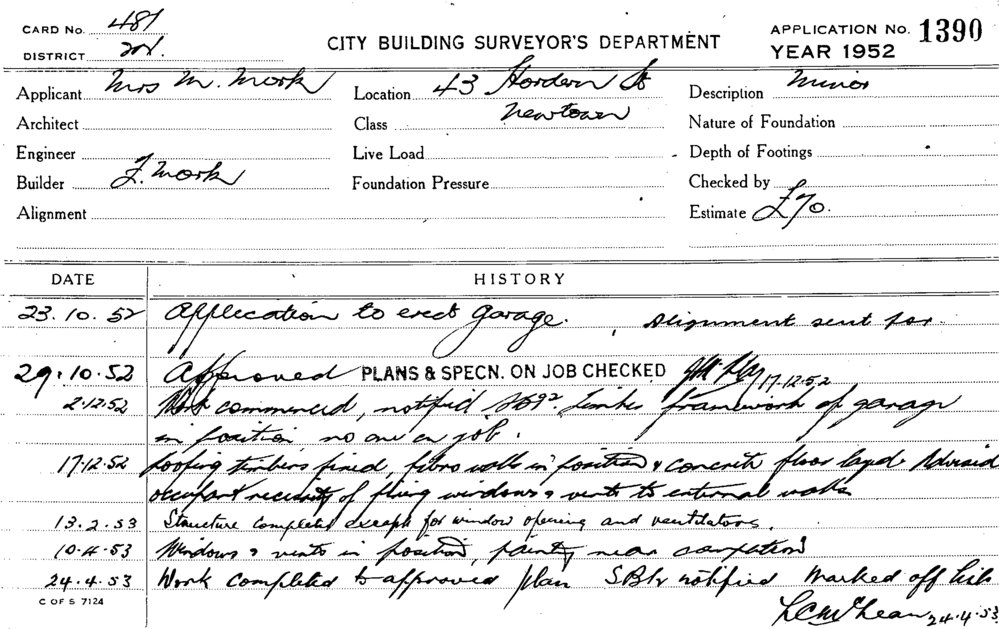 CARD No. 481
DISTRICT
CITY BUILDING SURVEYOR'S DEPARTMENT
APPLICATION No. 1390
YEAR 1952
Applicant Mrs M. Mork
Location 43 Hordern St
Newtown
Description Minor
Architect
Class
Nature of Foundation
Engineer
Live Load
Depth of Footings
Builder F. Mork
Foundation Pressure
Checked by
Alignment
Estimate £70.
DATE HISTORY
23.10.52 Application to erect garage. Alignment sent for
29.10.52 Approved PLANS & SPECN. ON JOB CHECKED 17.12.52
2.12.52 Work commenced, notified timber framework of garage
in position no one on job.
17.12.52 Roofing timbers fixed, fibro walls in position & concrete floor layed. Advised
occupant necessity of fixing windows & vents to external walls
13.2.53 Structure completed except for window opening and ventilators.
10.4.53 Windows & vents in position, painting near completion
24.4.53 Work completed to approved plan notified Marked off list
L C McLean 24.4.53
C OF S 7124